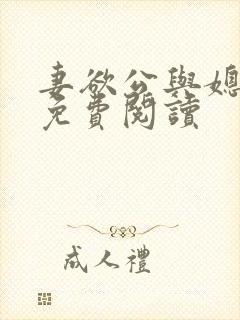 妻欲公與媳
免費閱讀
成人禮